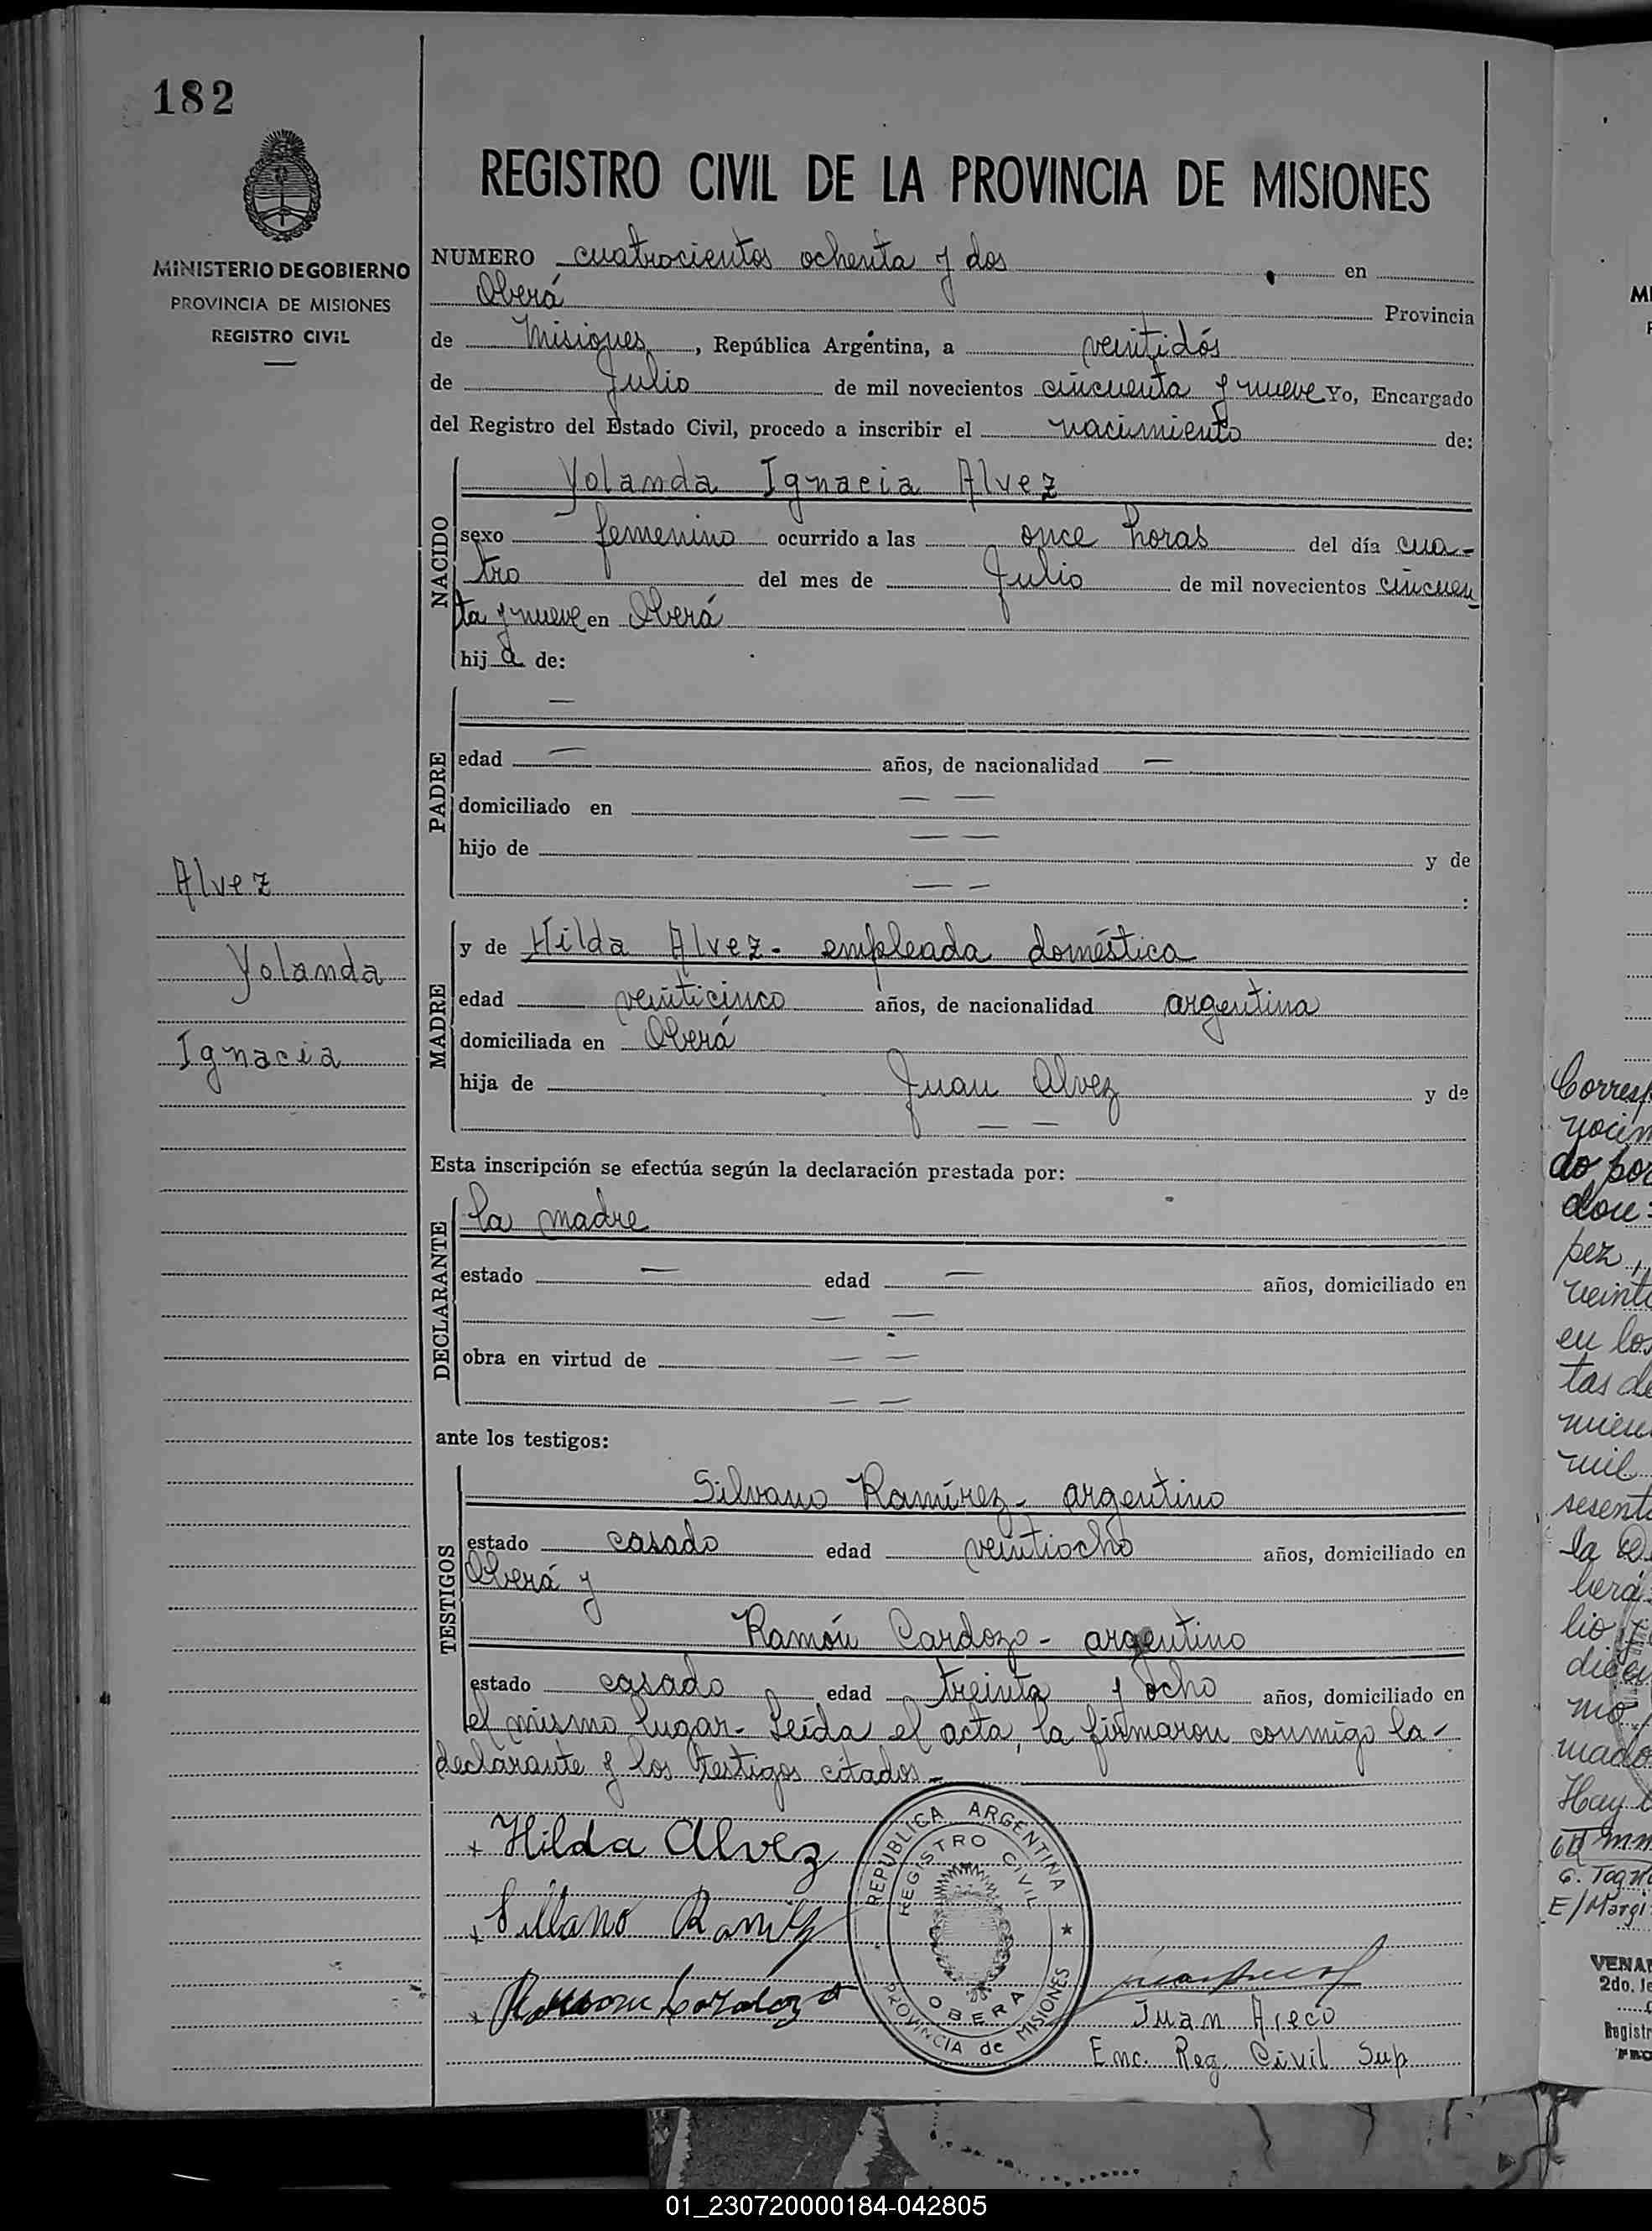 182
MINISTERIO DE GOBIERNO
PROVINCIA DE MISIONES
REGISTRO CIVIL
REGISTRO CIVIL DE LA PROVINCIA DE MISIONES
NUMERO cuatrocientos ochenta y dos en
Oberá Provincia
de Misiones, República Argentina, a veintidós
de Julio de mil novecientos cincuenta y nueve Yo, Encargado
del Registro del Estado Civil, procedo a inscribir el nacimiento de:
NACIDO
Yolanda Ignacia Alvez
sexo femenino ocurrido a las once horas del día cua-
tro del mes de Julio de mil novecientos cincuen
ta y nueve en Oberá
hija de:
PADRE
—
edad — años, de nacionalidad —
domiciliado en — —
hijo de — — y de
— — :
Alvez
Yolanda
Ignacia
MADRE
y de Hilda Alvez - empleada doméstica
edad veinticinco años, de nacionalidad argentina
domiciliada en Oberá
hija de Juan Alvez y de
— —
Esta inscripción se efectúa según la declaración prestada por:
DECLARANTE
la madre
estado — edad — años, domiciliado en
— —
obra en virtud de — —
— —
ante los testigos:
TESTIGOS
Silvano Ramírez - argentino
estado casado edad veintiocho años, domiciliado en
Oberá y
Ramón Cardozo - argentino
estado casado edad treinta y ocho años, domiciliado en
el mismo lugar - Leída el acta, la firmaron conmigo la -
declarante y los testigos citados -
Hilda Alvez
REPUBLICA ARGENTINA
REGISTRO CIVIL
OBERA
PROVINCIA de MISIONES
Juan Areco
Enc. Reg. Civil Sup
Corresp
do por
pez
en los
tas de
mil
sesenta
la
Hay
E/Margi
2do. Je
Registr
01_230720000184-042805